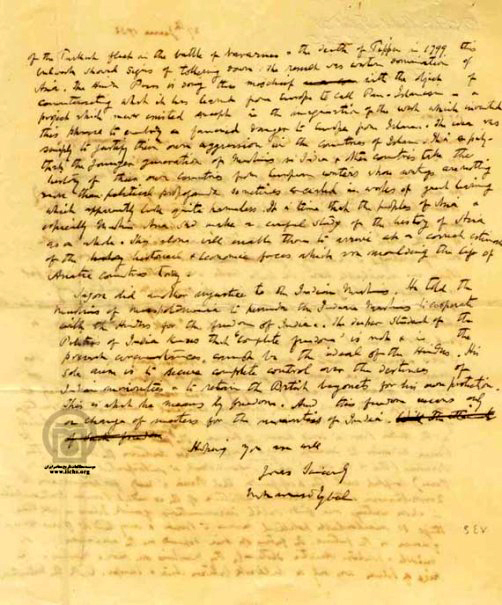 June
of the Turkish fleet in the battle of Navarino & the death of Tippu in 1799 this
bulwark showed signs of tottering down. The result was western domination of
Asia. The Hindu Press is doing this mischief with the object of
counteracting what it has learnt from Europe to call Pan-Islamism – a
project which never existed except in the imagination of those which invented
this phrase to embody a fancied danger to Europe from Islam. The idea was
simply to justify their own aggression in the countries of Islam. It is a pity
that the younger generation of Muslims in India & other countries take the
history of their own countries from European writers whose writings are nothing
more than political propaganda sometimes encased in works of great learning
which apparently look quite harmless. It is time that the peoples of Asia &
especially Muslim Asia shd make a careful study of the history of Asia
as a whole. This alone will enable them to arrive at a correct estimate
of the historical & economic forces which are moulding the life of
Asiatic countries today.
Tagore did another injustice to the Indian Muslims. He told the
Muslims of Mesopotamia to persuade the Indian Muslims to cooperate
with the Hindus for the freedom of India. The Student of the
Politics of India knows that "complete freedom" is not & in the
present circumstances cannot be the ideal of the Hindus. His
sole aim is to secure complete control over the destinies of
Indian minorities & to retain the British bayonets for his own protection.
This is what he means by freedom. And this freedom means only
a change of masters for the minorities of India.
Hoping you are well
Yours Sincerely
Mohammad Iqbal
www.iichs.org